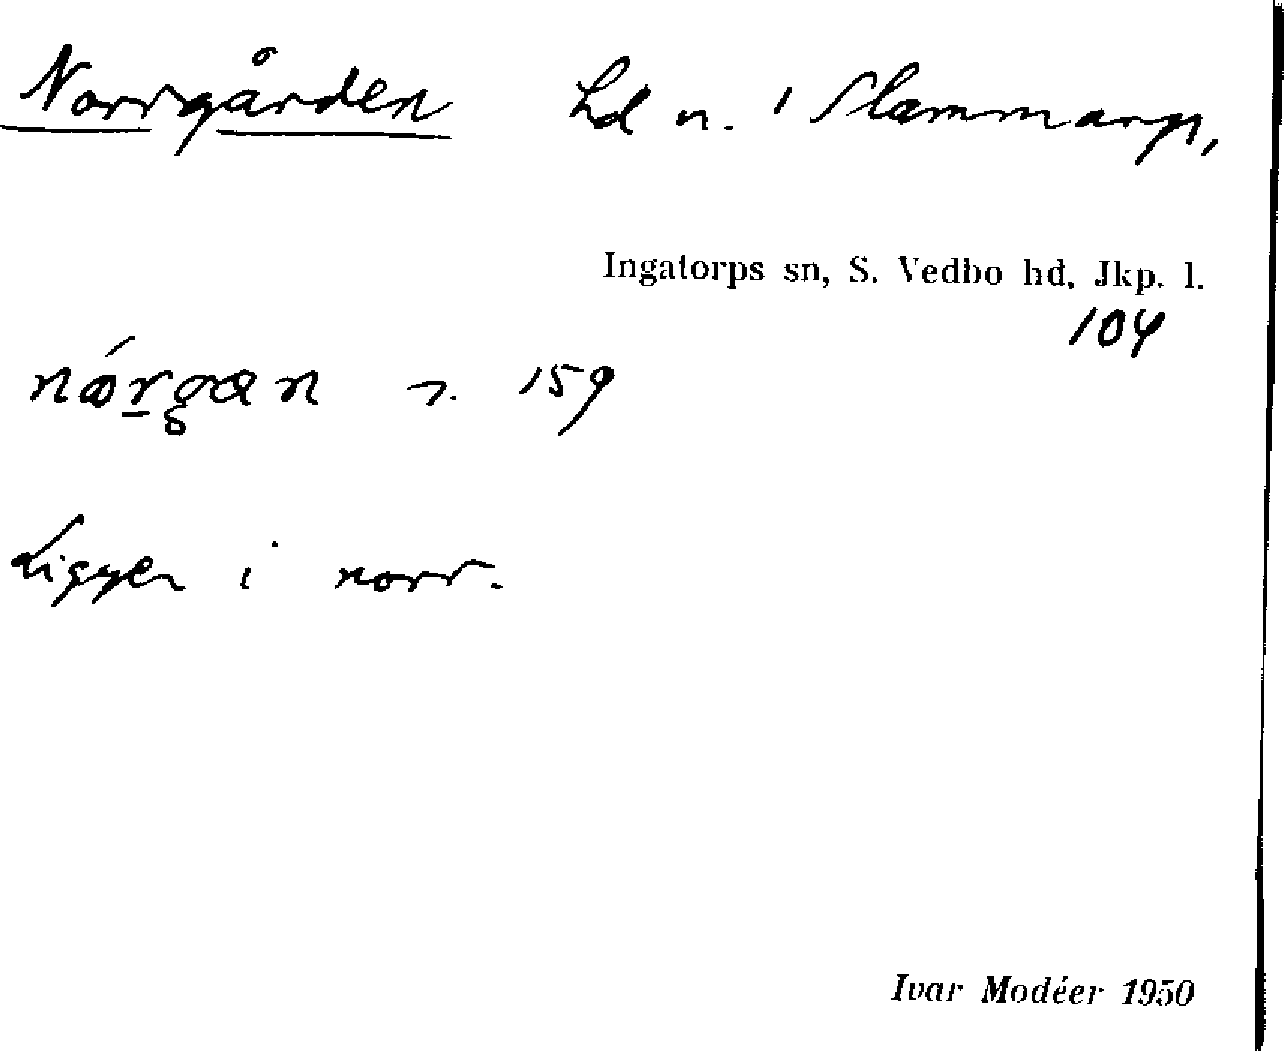 Norrgården hd n. i Slammarp,
Ingatorps sn, S. Vedbo hd, Jkp. l.
104
159
Ligger i norr.
Ivar Modéer 1950